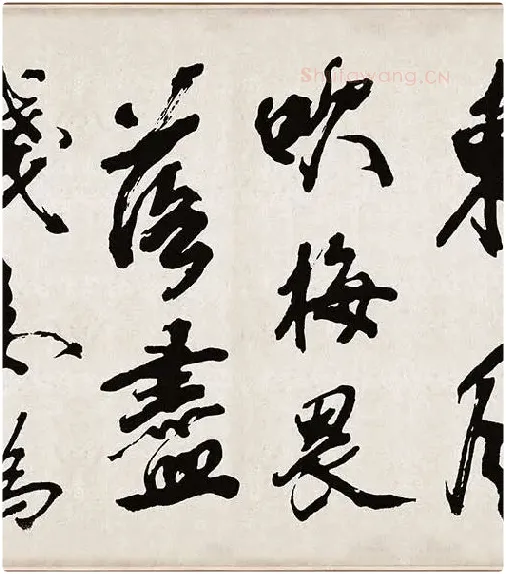 東風
吹梅畏
落盡
賤子為
Shufawang.CN